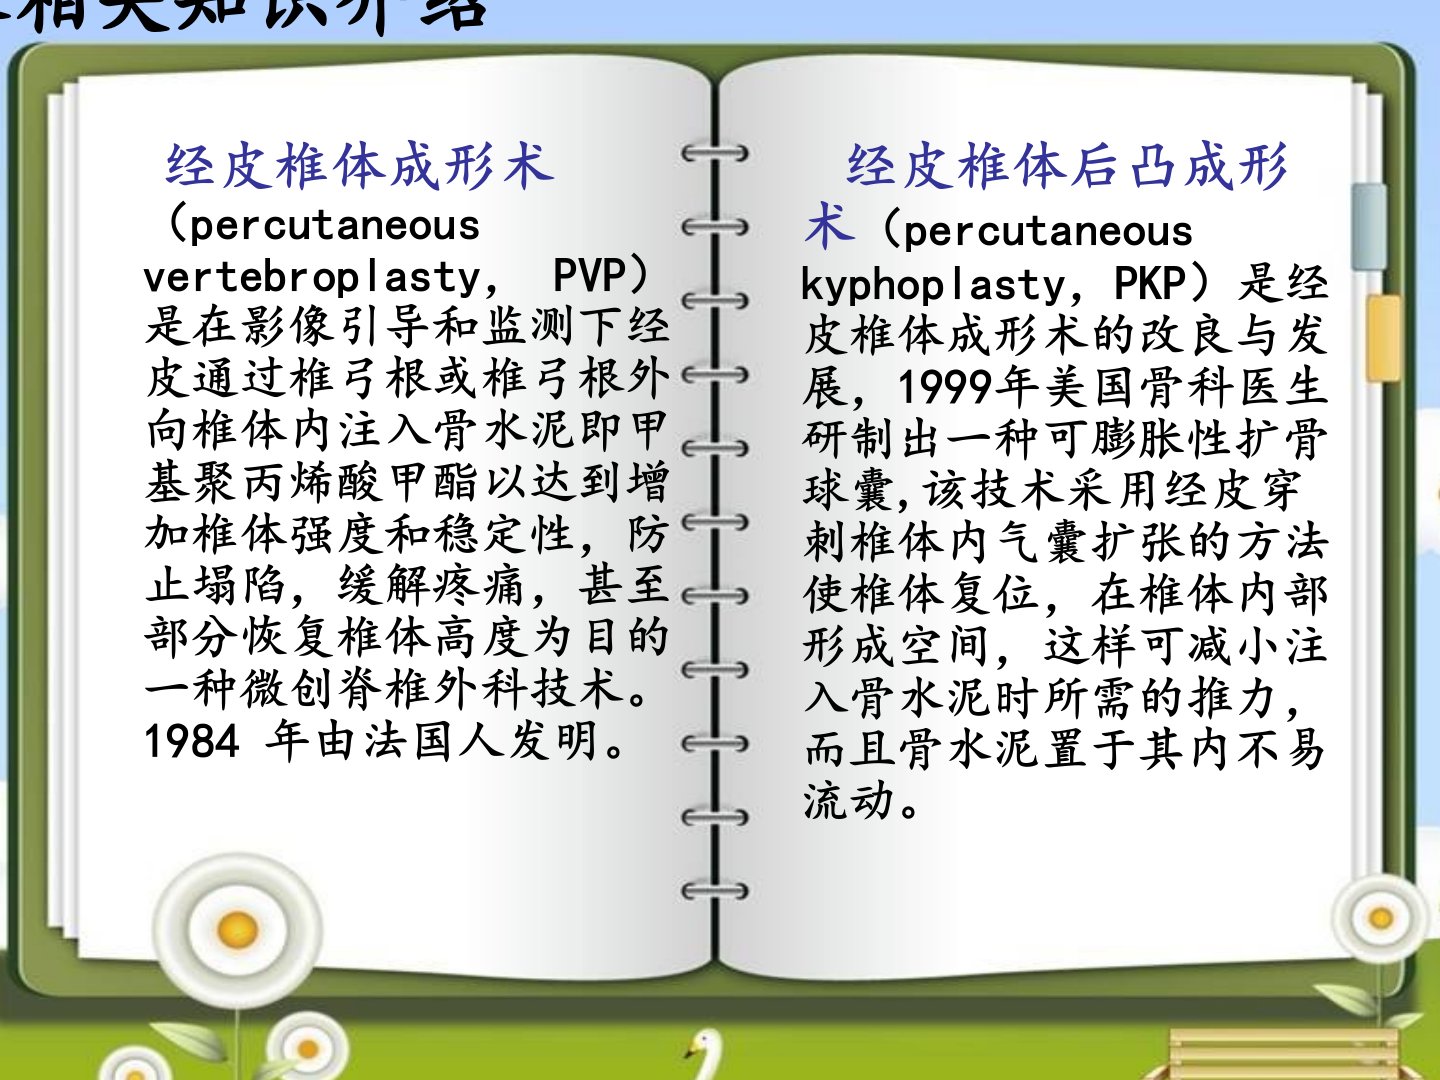 相关知识介绍
经皮椎体成形术
（percutaneous
vertebroplasty， PVP）
是在影像引导和监测下经
皮通过椎弓根或椎弓根外
向椎体内注入骨水泥即甲
基聚丙烯酸甲酯以达到增
加椎体强度和稳定性，防
止塌陷，缓解疼痛，甚至
部分恢复椎体高度为目的
一种微创脊椎外科技术。
1984 年由法国人发明。
经皮椎体后凸成形
术（percutaneous
kyphoplasty，PKP）是经
皮椎体成形术的改良与发
展，1999年美国骨科医生
研制出一种可膨胀性扩骨
球囊,该技术采用经皮穿
刺椎体内气囊扩张的方法
使椎体复位，在椎体内部
形成空间，这样可减小注
入骨水泥时所需的推力，
而且骨水泥置于其内不易
流动。